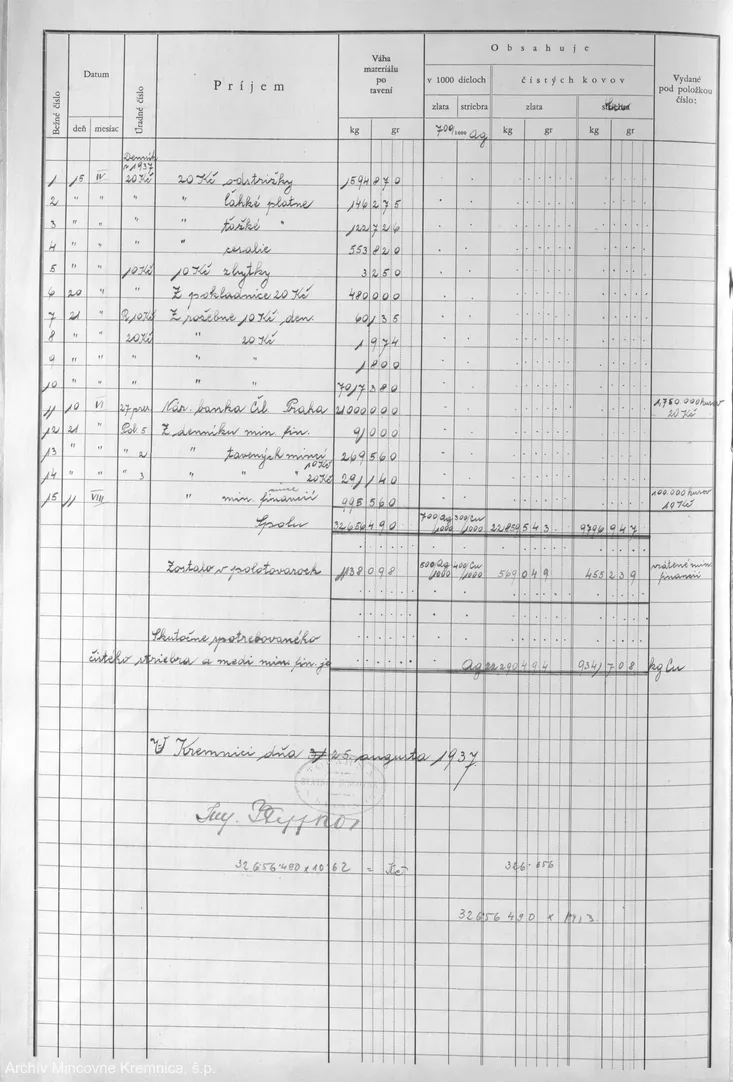 Obsahuje
Bežné číslo
Datum
deň mesiac
Úradné číslo
Príjem
Váha
materiálu
po
tavení
kg gr
v 1000 dieloch
zlata striebra
čistých kovov
zlata
kg gr kg gr
Vydané
pod položkou
číslo:
700/1000 Ag
Denník
r 1937
1 15 IV 20 Kč 20 Kč odstrižky 1594 870
2 " " " " ľahké platne 146 275
3 " " " " ťažké " 122 726
4 " " " " cesalie 553 820
5 " " 10 Kč 10 Kč zbytky 3 250
6 20 " " Z pokladnice 20 Kč 480 000
7 21 " R 10 Kč Z ražebne 10 Kč den. 60 135
8 " " 20 Kč " 20 Kč 1 974
9 " " " " " 1 800
10 " " " " " 7017 380
11 10 VI 27 pres Nár. banka Čsl Praha 21000 000 1,750.000 kusov
20 Kč
12 21 " Pol 5 Z denníku min. fin. 91 000
13 " " " 2 " tavených mincí 269 560
14 " " " 3 " " " 10 Kč
20 Kč 291 140
15 11 VIII " min. financií 995 560 100.000 kusov
10 Kč
Spolu 32656 490 700/1000 Ag 300/1000 Cu 22 859 543 9796 947
Zostalo v polotovaroch 1138 098 500/1000 Ag 400/1000 Cu 569 049 455 239 vrátené min.
financií
Skutočne spotrebovaného
čistého striebra a medi min. fin. je Ag 22 290 494 9341 708 kg Cu
V Kremnici dňa 31 25. augusta 1937
Ing.
32656·490 x 10·62 = Kč 326·656
32656 490 x 19,3
Archív Mincovne Kremnica, š.p.